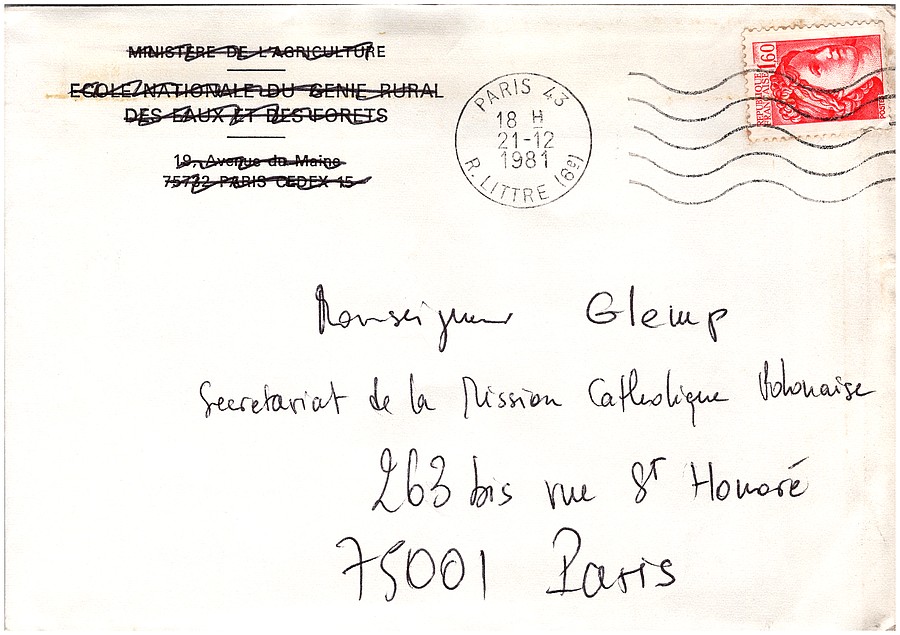 MINISTÈRE DE L'AGRICULTURE
ECOLE NATIONALE DU GENIE RURAL
DES EAUX ET DES FORETS
19, Avenue du Maine
75732 PARIS CEDEX 15
PARIS 43
18 H
21-12
1981
R. LITTRE (6e)
1,60
REPUBLIQUE FRANÇAISE
POSTES
Monseigneur Glemp
Secretariat de la Mission Catholique Polonaise
263 bis rue St Honoré
75001 Paris